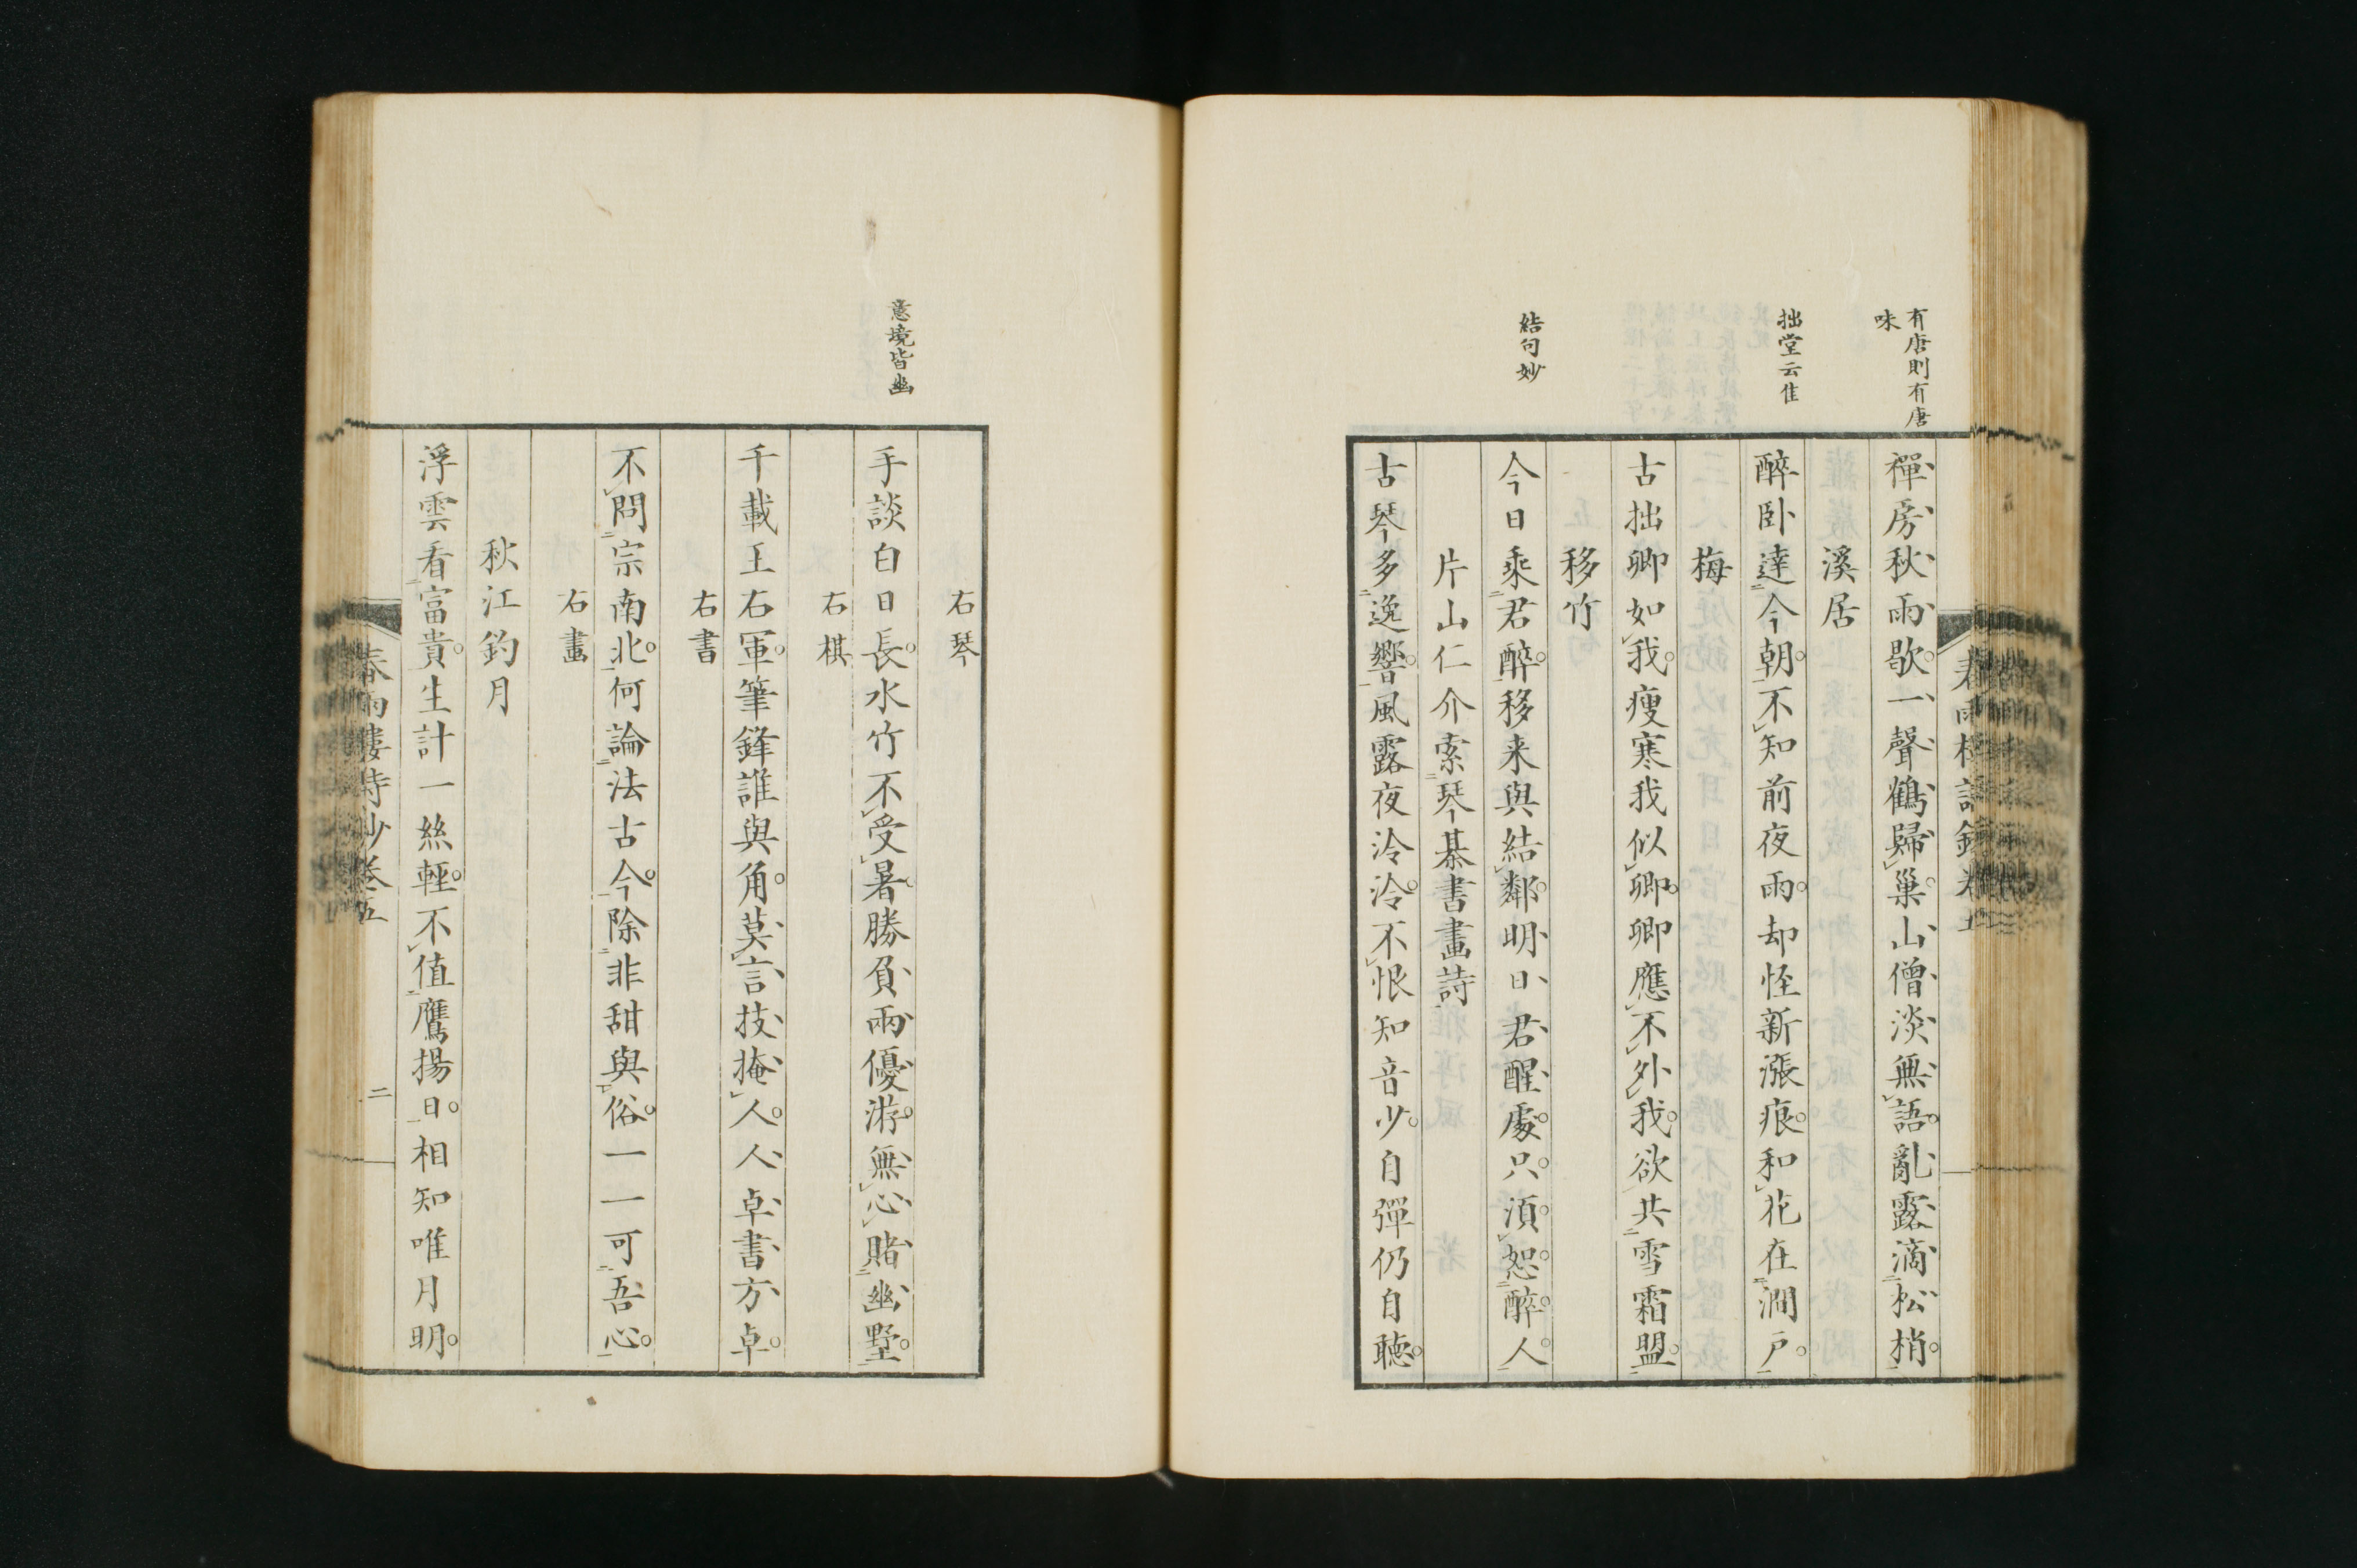 有唐則有唐
味
禪房秋雨歇一聲鶴歸巢山僧淡無語亂露滴松梢
溪居
拙堂云佳
醉卧達今朝不知前夜雨却怪新漲痕和花在澗戸
梅
古拙卿如我瘦寒我似卿卿應不外我欲共雪霜盟
移竹
結句妙
今日乘君醉移来與結鄰明日君醒處只湏恕醉人
片山仁介索琴棊書畫詩
古琴多逸響風露夜泠泠不恨知音少自彈仍自聴
右琴
意境皆幽
手談白日長水竹不受暑勝負兩優游無心賭幽墅
右棋
千載王右軍筆鋒誰與角莫言技掩人人卓書方卓
右書
不問宗南北何論法古今除非甜與俗一一可吾心
右畫
秋江釣月
浮雲看富貴生計一絲輕不值鷹揚日相知唯月明
春雨樓詩鈔卷五
二